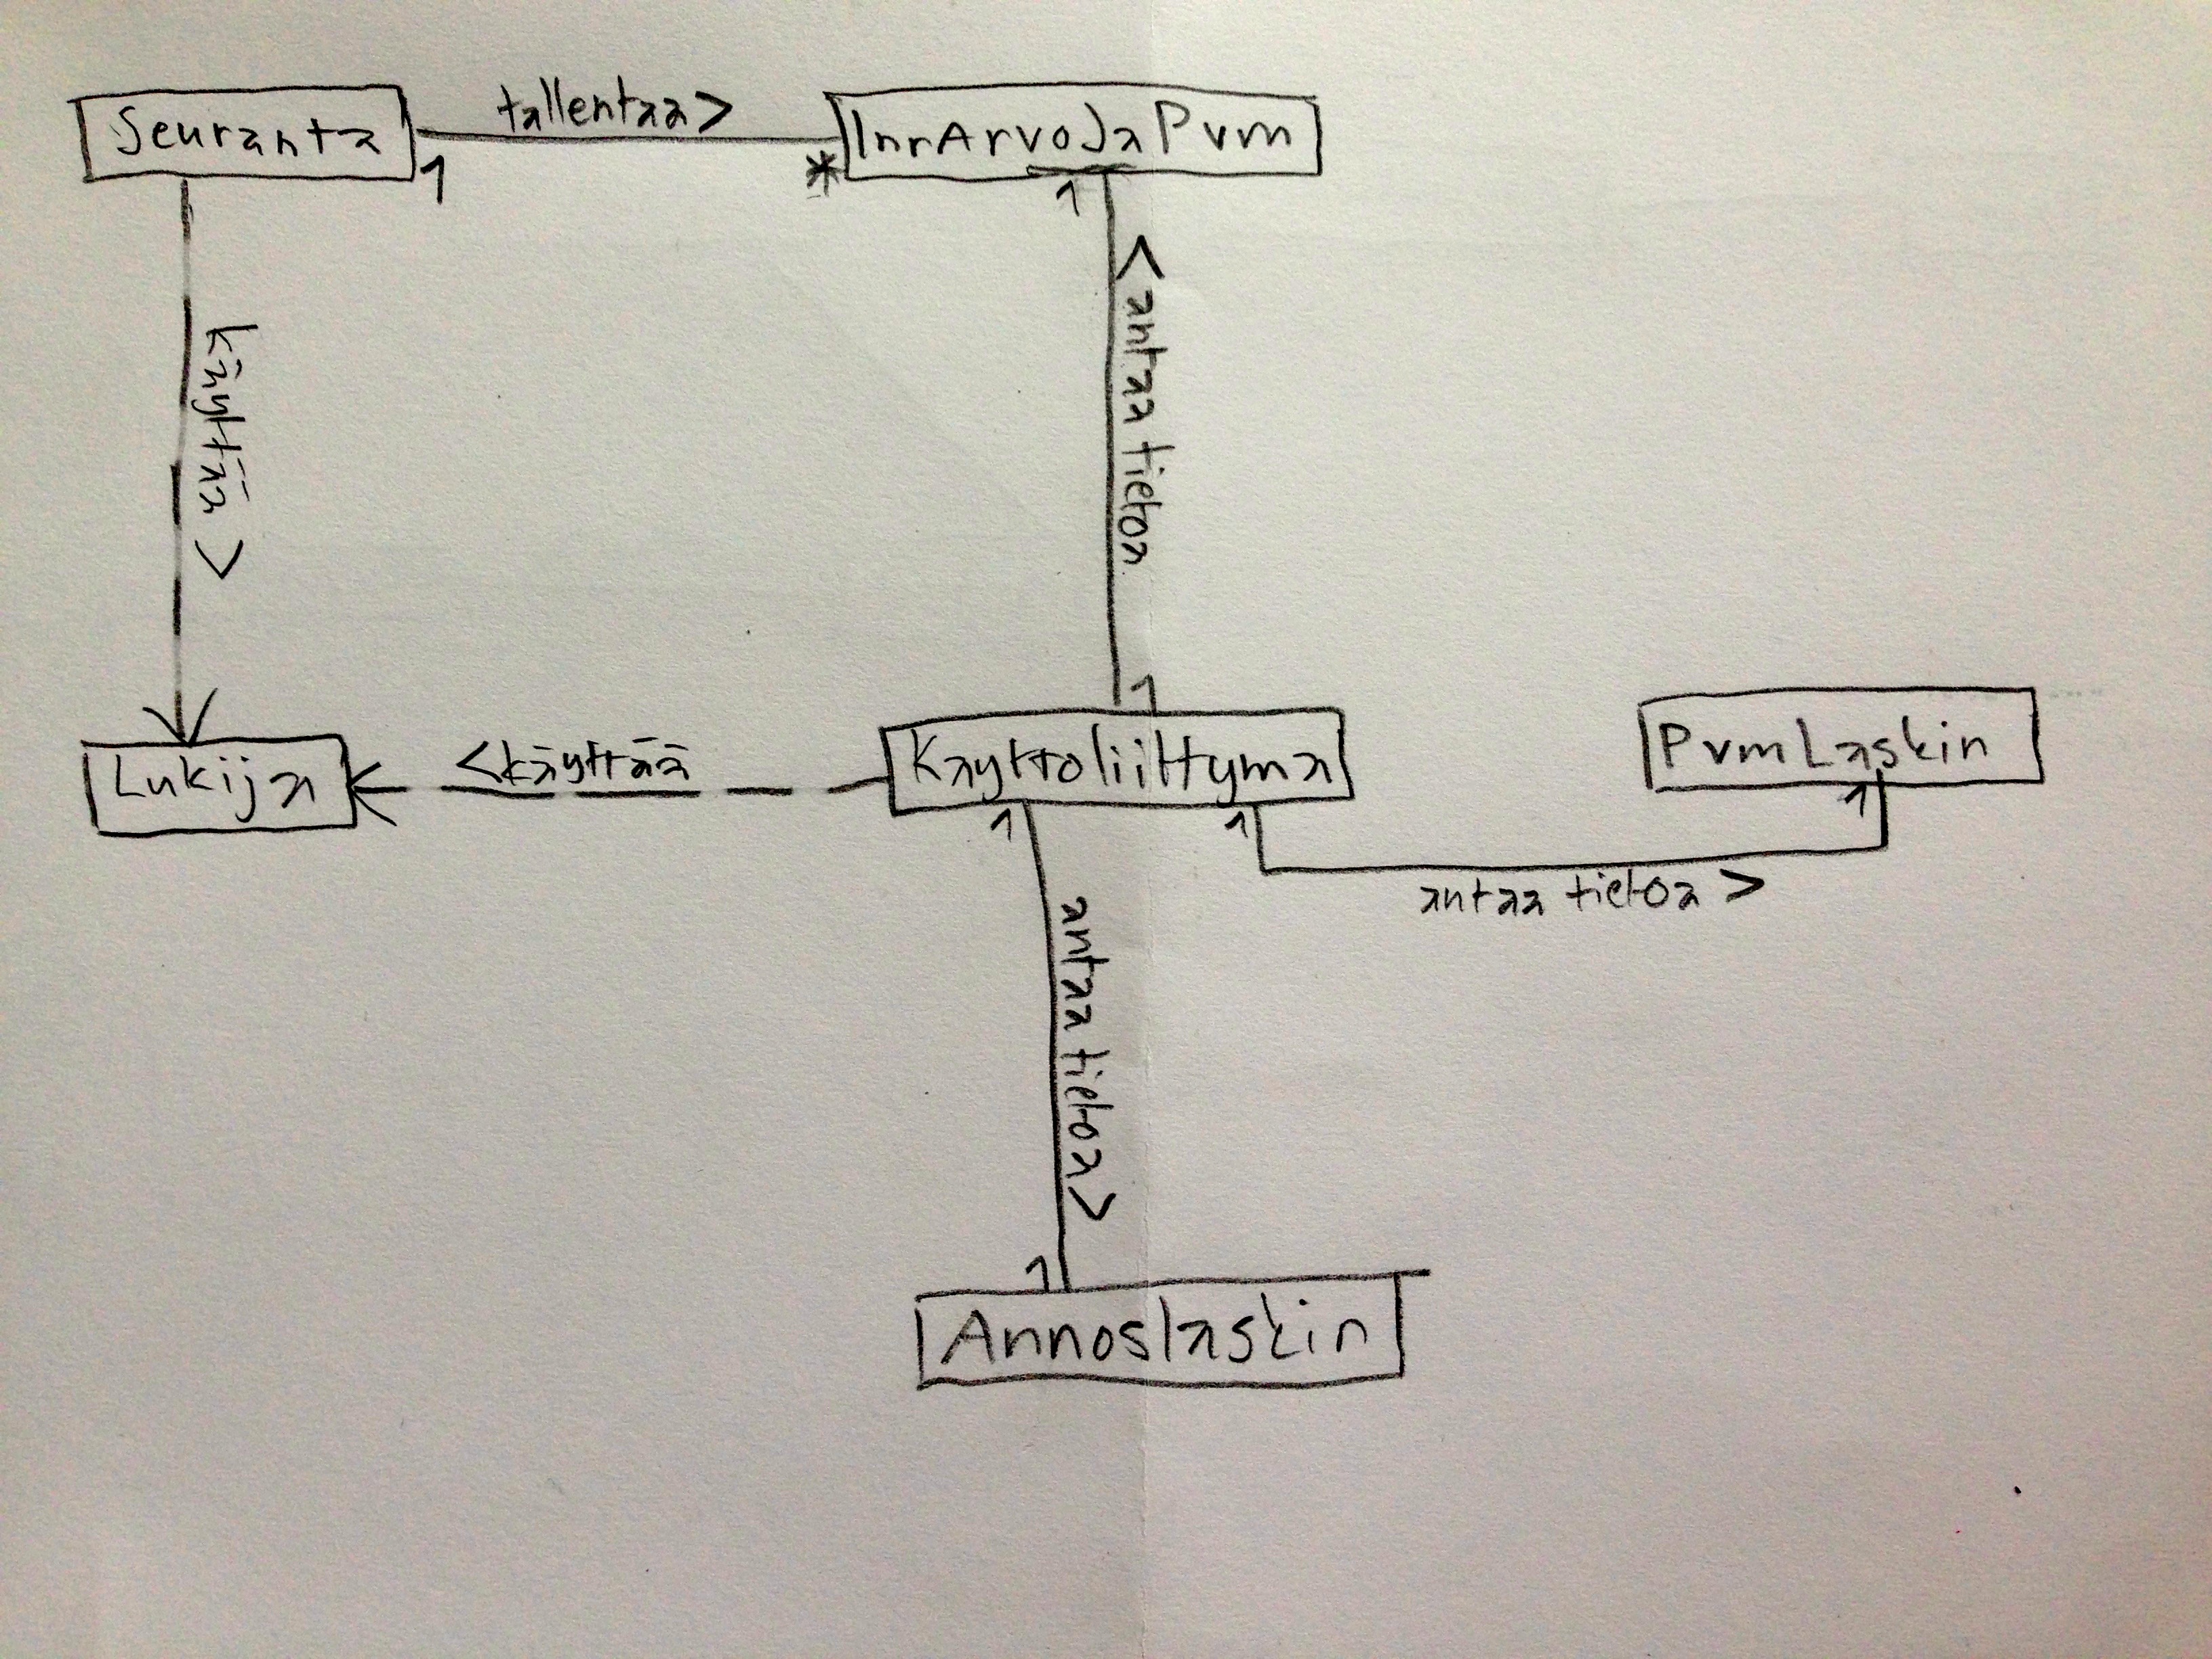 Seuranta
tallentaa >
InrArvoJaPvm
1
*
1
käyttää >
< antaa tietoa
1
Lukija
< käyttää
Kayttoliittyma
PvmLaskin
1
1
1
antaa tietoa >
antaa tietoa >
1
Annoslaskin